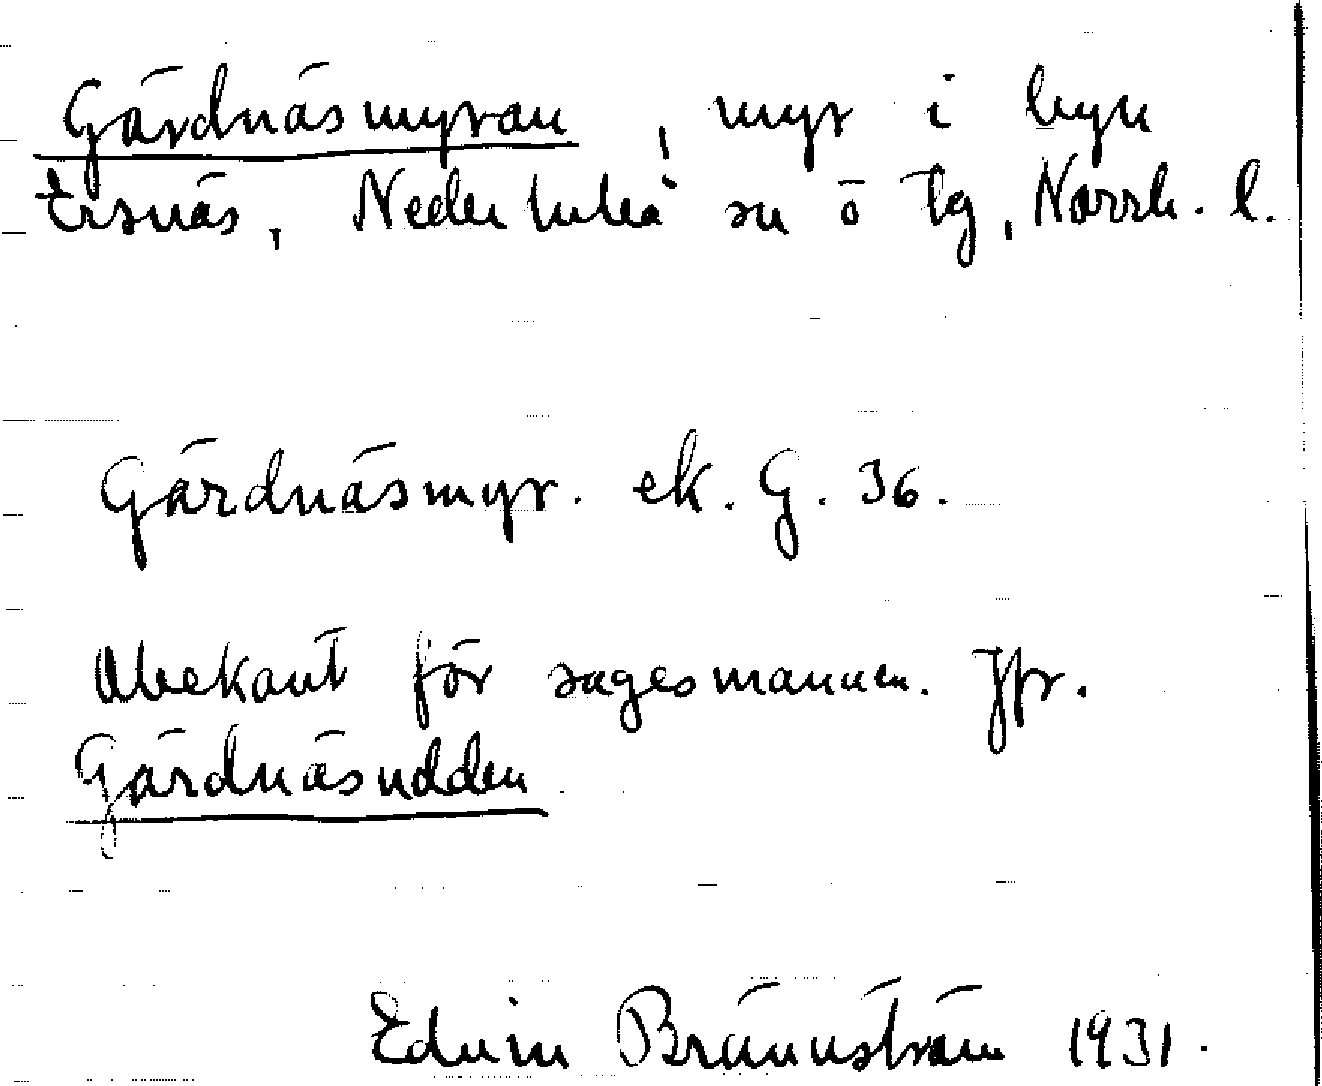 Gärdnäsmyran, myr i byn
Ersnäs, Neder Luleå sn ö tg, Norrb. l.
Gärdnäsmyr. ek. G. 36.
Obekant för sagesmannen. Jfr.
Gärdnäsudden
Edvin Brännström 1931.